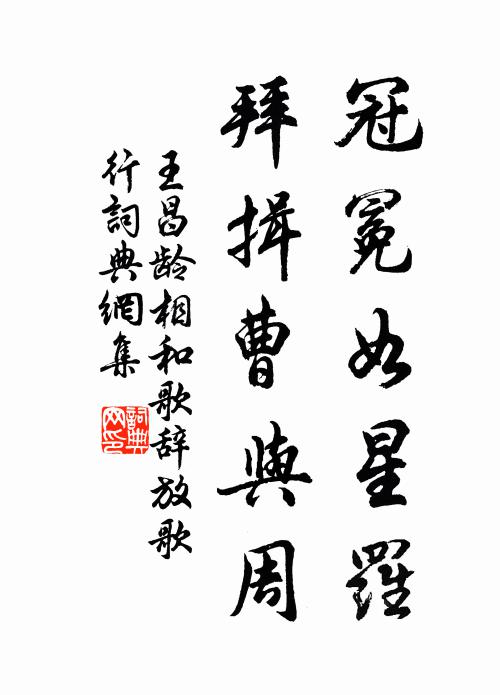 冠冕如星羅
拜揖曹與周
王昌龄相和歌辞放歌
行詞典網集
詞典
网印